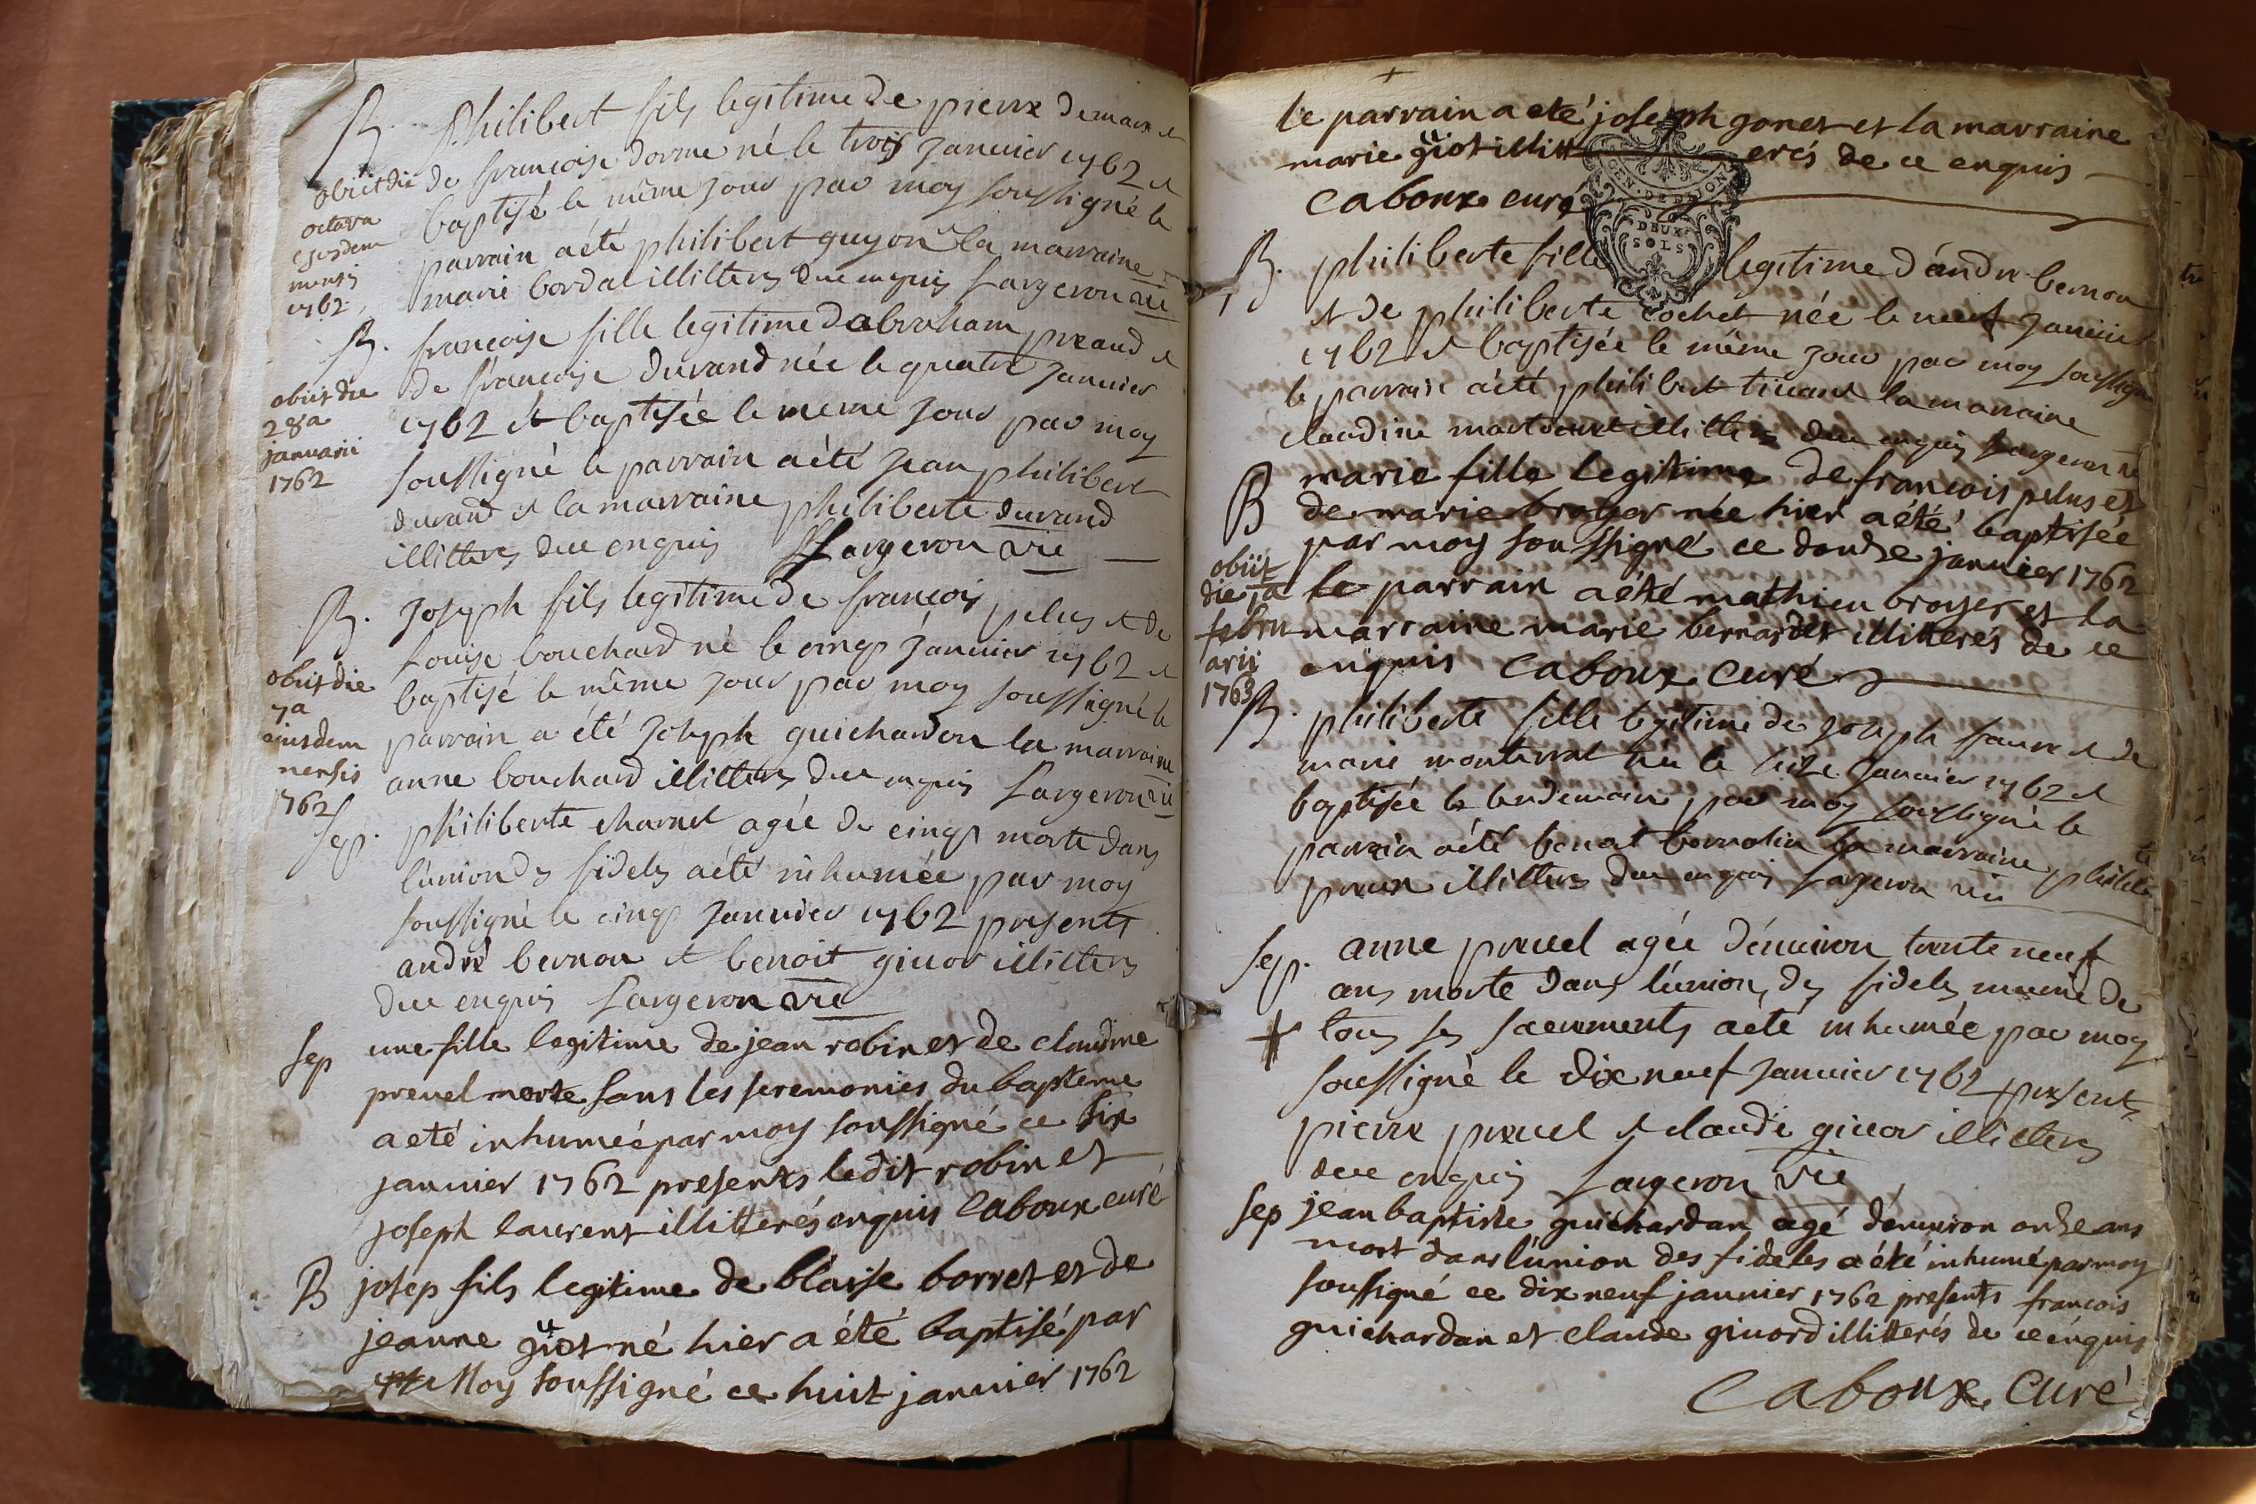 B. philibert fils legitime de pierre demaux et
de francoise dorme né le trois janvier 1762 et
baptisé le même jour par moy soussigné le
parrain a été philibert guyon la marraine
marie bordat illitterés de ce enquis Largeron vic
obiit die
octava
ejusdem
mensis
1762
B. francoise fille legitime d'abraham preaud et
de francoise durand née le quatre janvier
1762 et baptisée le meme jour par moy
soussigné le parrain a été jean philibert
durand et la marraine philiberte durand
illitterés de ce enquis Largeron vic
obiit die
28a
januarii
1762
B. Joseph fils legitime de francois pelus et de
Louise bouchard né le cinq janvier 1762 et
baptisé le même jour par moy soussigné le
parrain a été Joseph guichardon la marraine
anne bouchard illitterés de ce enquis Largeron vic
obiit die
7a
eiusdem
mensis
1762
sep. philiberte charnet agée de cinq morte dans
l'union des fideles a été inhumée par moy
soussigné le cinq janvier 1762 presents
andré bernon et benoit givor illitterés
de ce enquis Largeron vic
sep une fille legitime de jean robin et de claudine
prevel morte sans les seremonies du bapteme
a eté inhumée par moy soussigné ce six
janvier 1762 presents ledit robin et
joseph laurent illitterés enquis Caboux curé
B josep fils legitime de blaise borret et de
jeanne guiot né hier a été baptisé par
Moy soussigné ce huit janvier 1762
le parrain a eté joseph gonet et la marraine
marie guiot illitt erés de ce enquis
Caboux curé
GEN. DE DIJON
DEUX
SOLS
B. philiberte fille legitime d'andré bernon
et de philiberte cochet née le neuf janvier
1762 et baptisée le même jour par moy soussigné
le parrain a été philibert la marraine
claudine illitterés de ce enquis Largeron vic
B marie fille legitime de francois pelus et
de marie broyer née hier a été baptisée
par moy soussigné ce douze janvier 1762
le parrain a été mathieu broyer et la
marraine marie bernardet illitterés de ce
enquis Caboux curé
obiit
die 7a
febru
arii
1763
B. philiberte fille legitime de Joseph faure et de
marie monterrat née le seize janvier 1762 et
baptisée le lendemain par moy soussigné le
parrain a été benoit bernolin la marraine philibte
preux illitterés de ce enquis Largeron vic
sep. anne prevel agée d'environ trente neuf
ans morte dans l'union des fideles munie de
tous ses sacrements a été inhumée par moy
soussigné le dix neuf janvier 1762 presents
pierre prevel et claude givor illitterés
de ce enquis Largeron vic
sep jean baptiste guichardan agé d'environ onze ans
mort dans l'union des fideles a été inhumé par moy
soussigné ce dix neuf janvier 1762 presents francois
guichardan et claude givord illitterés de ce enquis
Caboux Curé